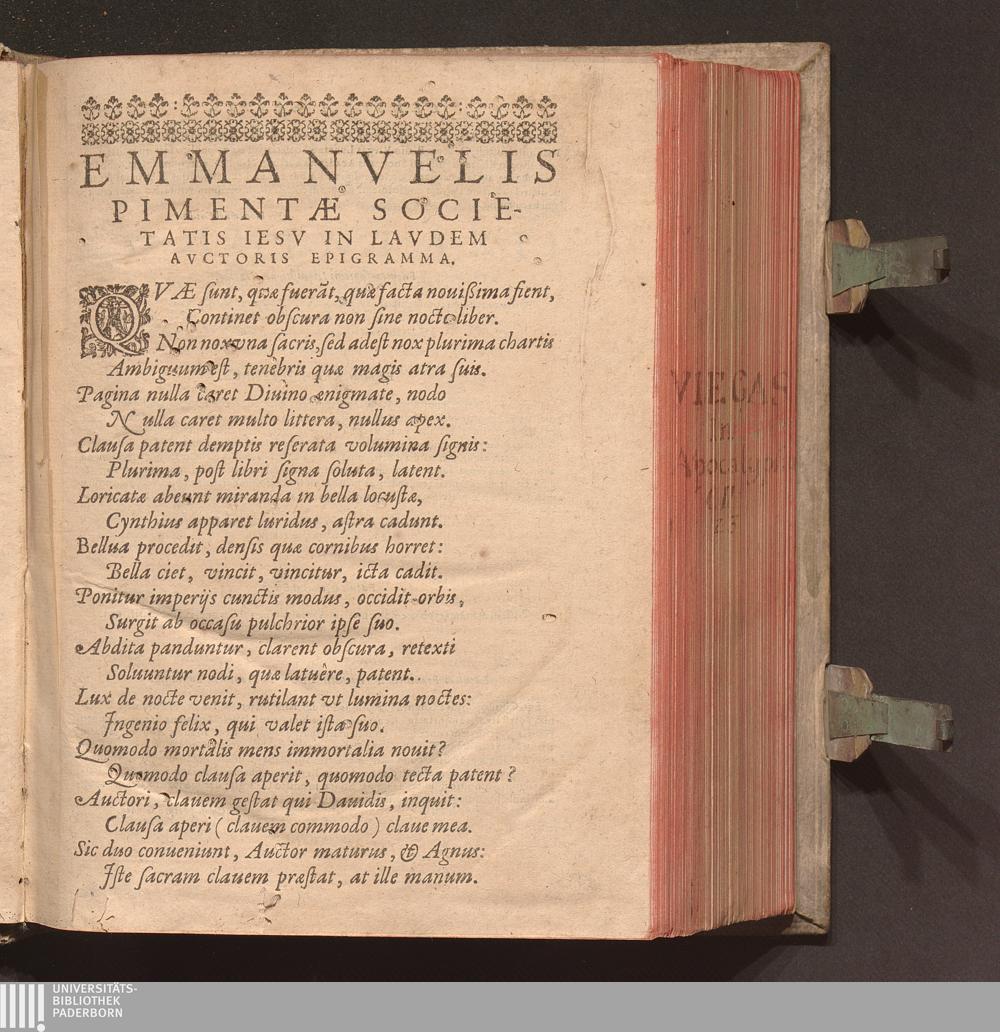 EMMANVELIS
PIMENTÆ SOCIE-
TATIS IESV IN LAVDEM
AVCTORIS EPIGRAMMA.
QVÆ ſunt, quæ fuerāt, quæ facta nouiſsima fient,
Continet obſcura non ſine nocte liber.
Non nox vna ſacris, ſed adeſt nox plurima chartis
Ambiguum eſt, tenebris quæ magis atra ſuis.
Pagina nulla caret Diuino ænigmate, nodo
Nulla caret multo littera, nullus apex.
Clauſa patent demptis reſerata volumina ſignis:
Plurima, poſt libri ſigna ſoluta, latent.
Loricatæ abeunt miranda in bella locuſtæ,
Cynthius apparet luridus, aſtra cadunt.
Bellua procedit, denſis quæ cornibus horret:
Bella ciet, vincit, vincitur, icta cadit.
Ponitur imperijs cunctis modus, occidit orbis,
Surgit ab occaſu pulchrior ipſe ſuo.
Abdita panduntur, clarent obſcura, retexti
Soluuntur nodi, quæ latuêre, patent.
Lux de nocte venit, rutilant vt lumina noctes:
Ingenio felix, qui valet iſta ſuo.
Quomodo mortalis mens immortalia nouit?
Quomodo clauſa aperit, quomodo tecta patent?
Auctori, clauem geſtat qui Dauidis, inquit:
Clauſa aperi (clauem commodo) claue mea.
Sic duo conueniunt, Auctor maturus, & Agnus:
Iſte ſacram clauem præſtat, at ille manum.
VIEGAS
In
UNIVERSITÄTS-
BIBLIOTHEK
PADERBORN